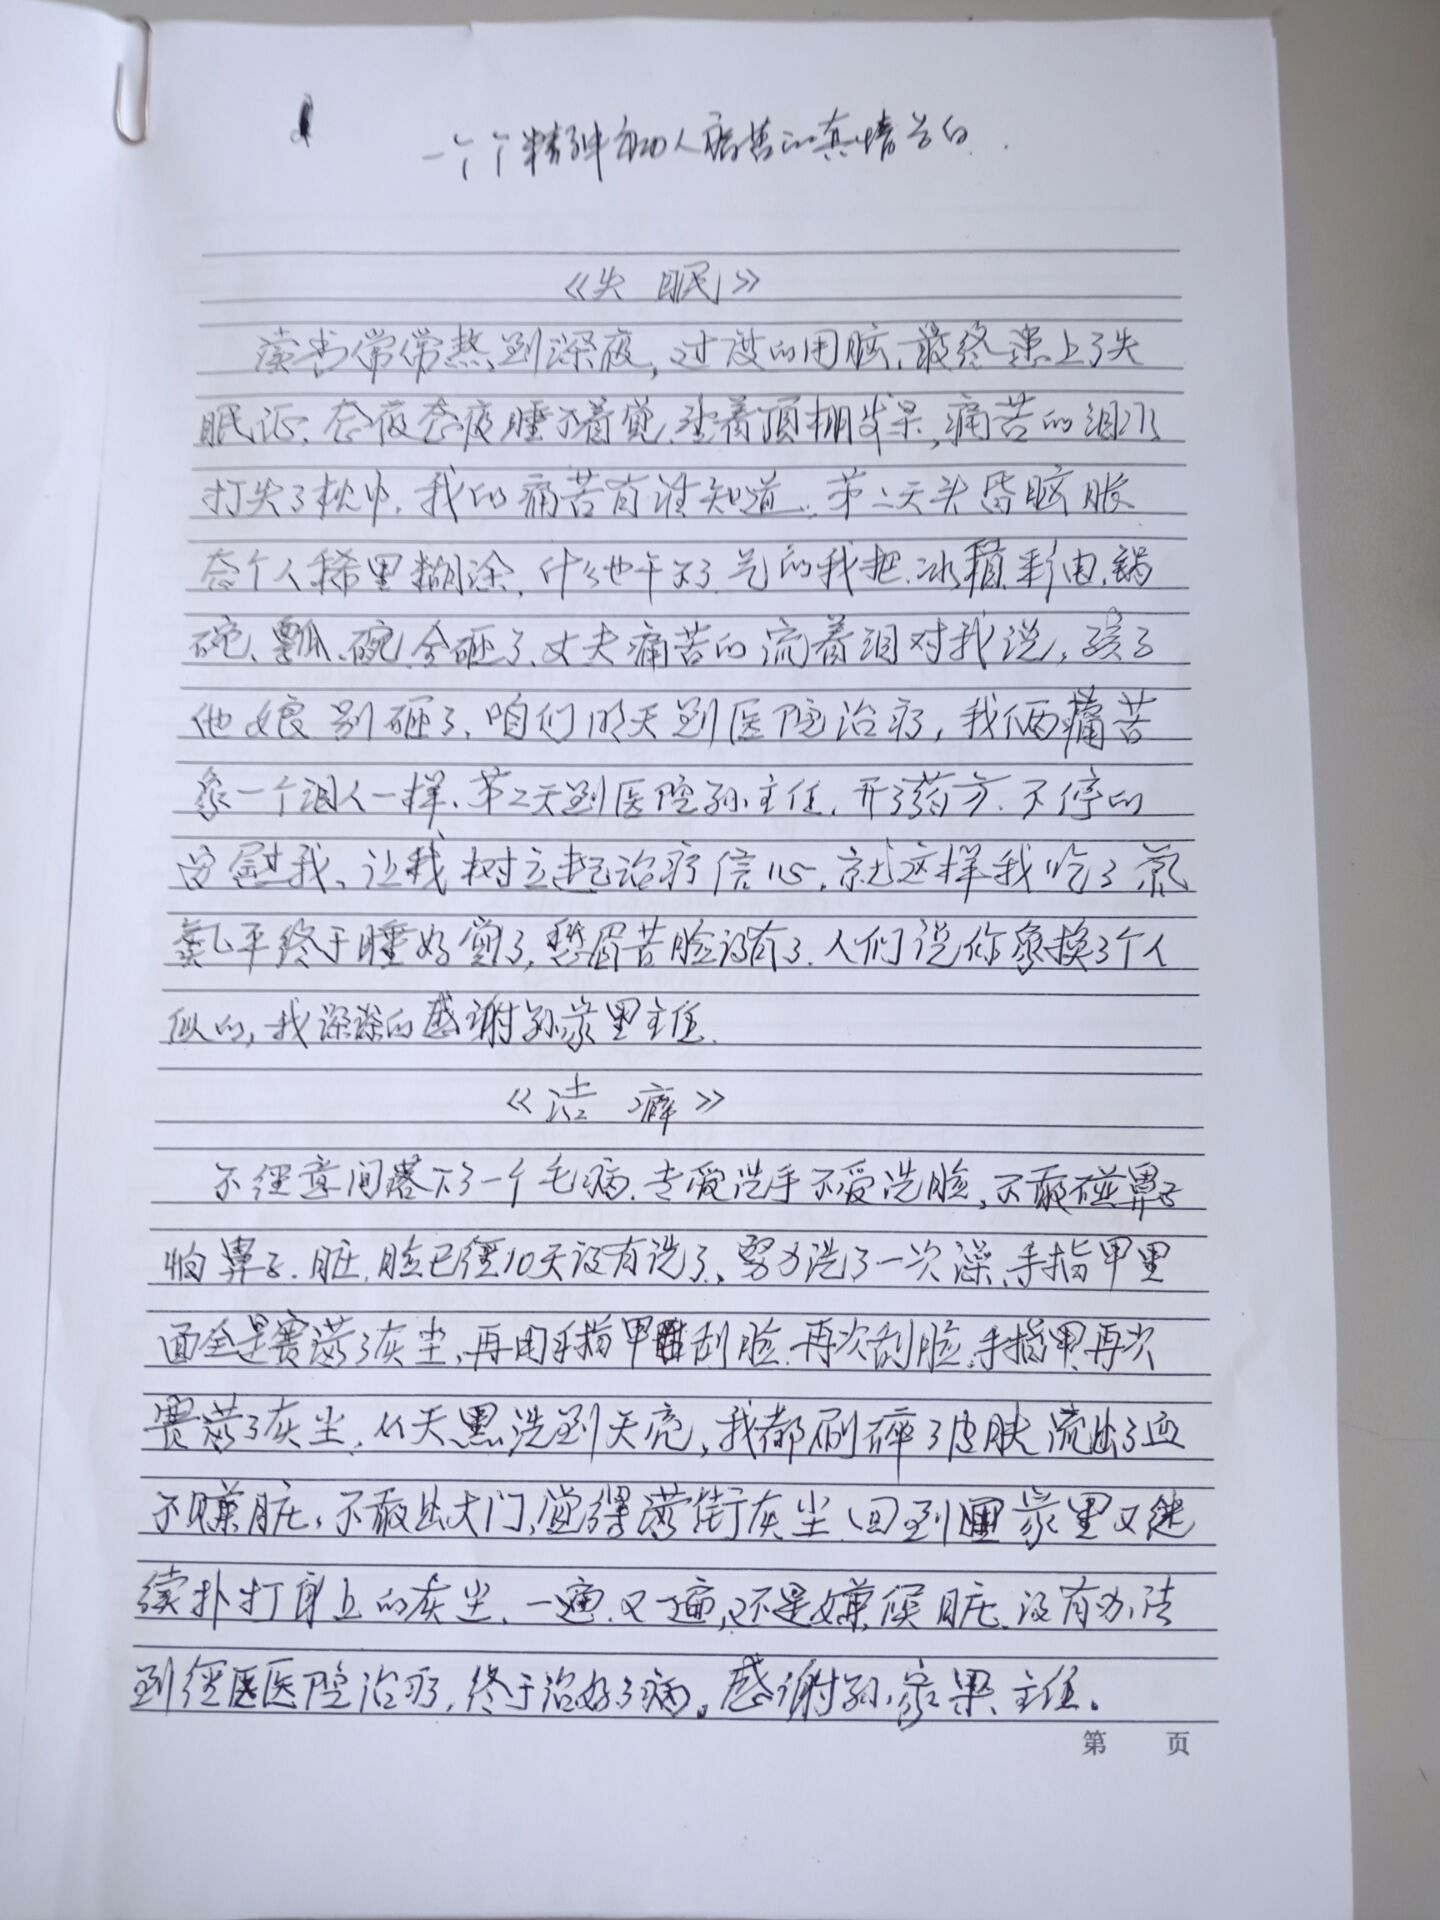 一个个精神病人痛苦的真情告白.
《失 眠》
读书常常熬到深夜,过度的用脑,最终患上了失
眠证,夜夜睡不着觉,望着顶棚发呆,痛苦的泪水
打失了枕巾,我的痛苦有谁知道.第二天头昏脑胀
个人稀里糊涂,什么也干不了气的我把.冰箱.彩电.锅
碗、瓢、碗.全砸了.丈夫痛苦的流着泪对我说,孩子
他娘别砸了,咱们明天到医院治疗,我俩痛苦
象一个泪人一样.第二天到医院孙主任,开了药方.不停的
安慰我,让我树立起治疗信心.就这样我吃了氯
氮平终于睡好觉了,愁眉苦脸没有了.人们说你象换了个人
似的,我深深的感谢孙家果主任.
《洁 癖》
不经意间落下了一个毛病.专爱洗手不爱洗脸,不敢碰鼻子
怕鼻子.脏,脸已经10天没有洗了,努力洗了一次澡,手指甲里
面全是赛满了灰尘,再用手指甲刮脸.再次刮脸.手指甲再次
赛满了灰尘,从天黑洗到天亮,我都刷碎了皮肤流出了血
不赚脏,不敢出大门,觉得满街灰尘.回到家里又继
续扑打身上的灰尘.一遍又一遍,还是嫌脏.没有办法
到医院治疗,终于治好了病。感谢孙家果主任.
第 页